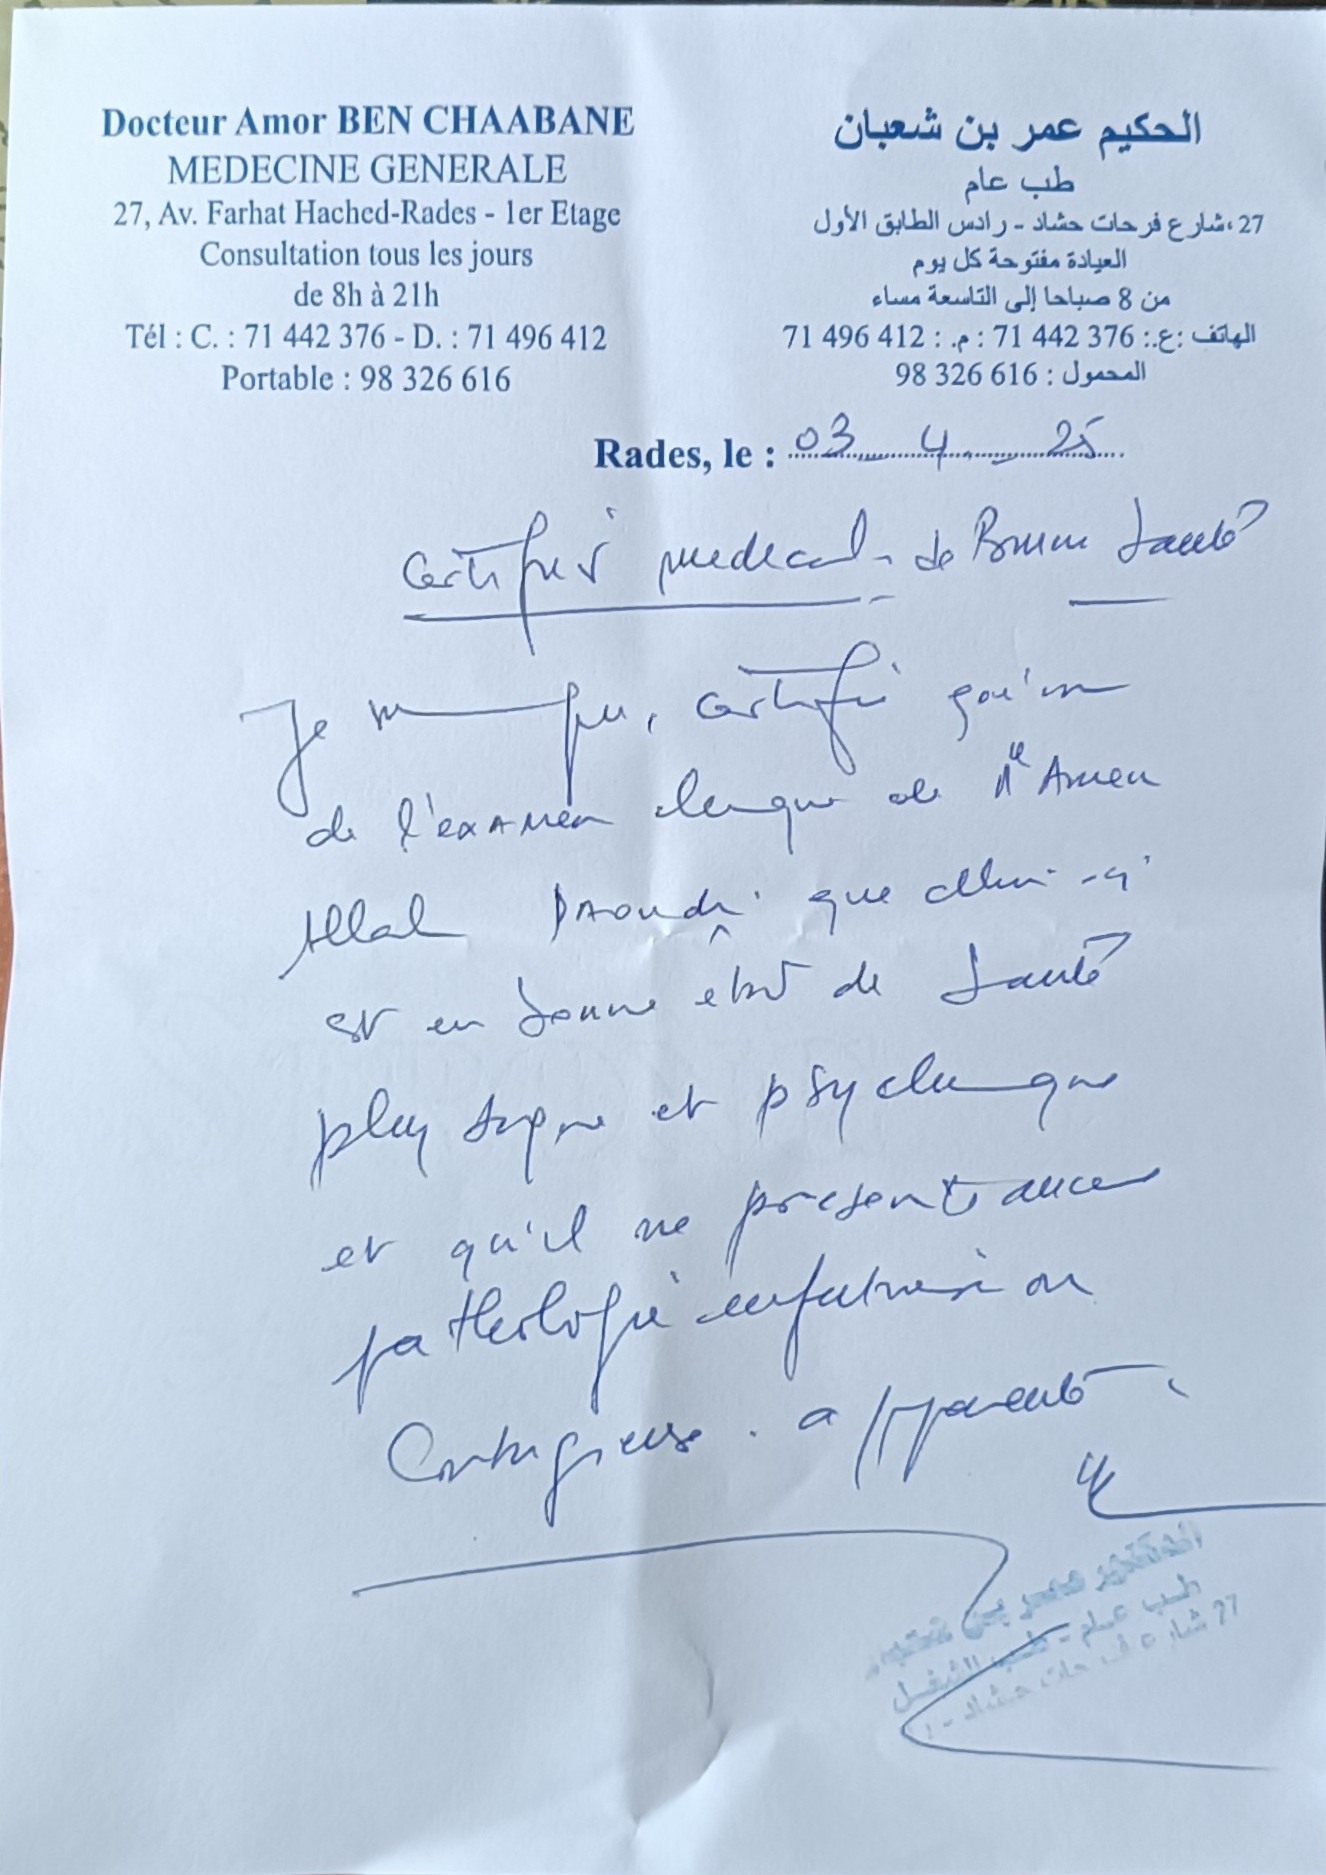 Docteur Amor BEN CHAABANE
MEDECINE GENERALE
27, Av. Farhat Hached-Rades - 1er Etage
Consultation tous les jours
de 8h à 21h
Tél : C. : 71 442 376 - D. : 71 496 412
Portable : 98 326 616
الحكيم عمر بن شعبان
طب عام
27، شارع فرحات حشاد - رادس الطابق الأول
العيادة مفتوحة كل يوم
من 8 صباحا إلى التاسعة مساء
الهاتف :ع.: 376 442 71 : م. : 412 496 71
المحمول : 616 326 98
Rades, le : 03 4 25
certificat medical de Bonne Santé
Je certifie
de l'examen clinique de Amen
Allah Daoudi que celui-ci
est en bonne état de Santé
physique et psychique
et qu'il ne présente aucune
pathologie infectieuse ou
Contagieuse. apparente
الدكتور عمر بن شعبان
طب عام - طب الشغل
27 شارع فرحات حشاد -